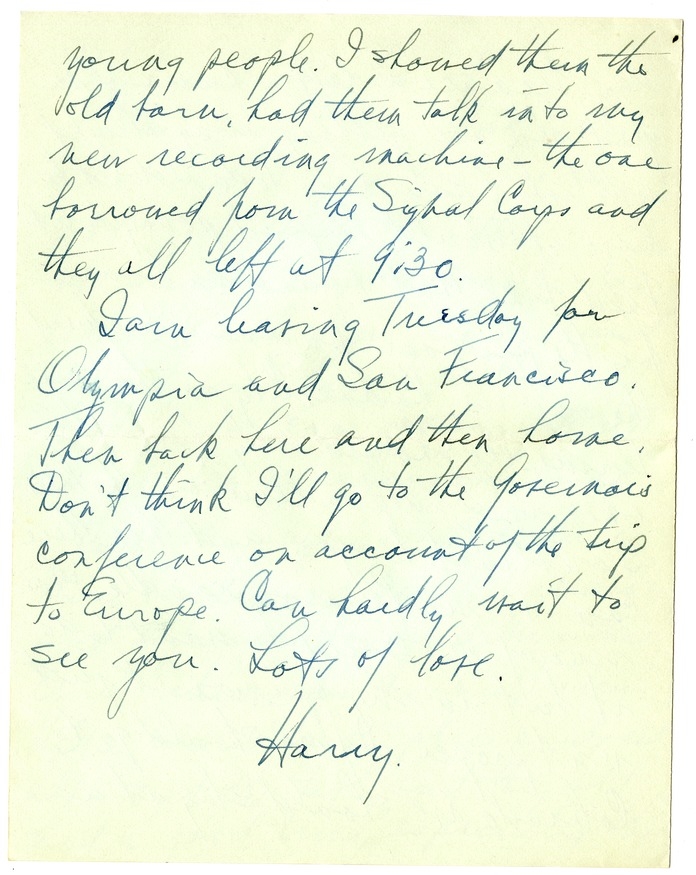 young people. I showed them the
old barn, had them talk into my
new recording machine - the one
borrowed from the Signal Corps and
they all left at 9:30.
I am leaving Tuesday for
Olympia and San Francisco.
Then back here and then home.
Don't think I'll go to the Governors
conference on account of the trip
to Europe. Can hardly wait to
see you. Lots of love.
Harry.